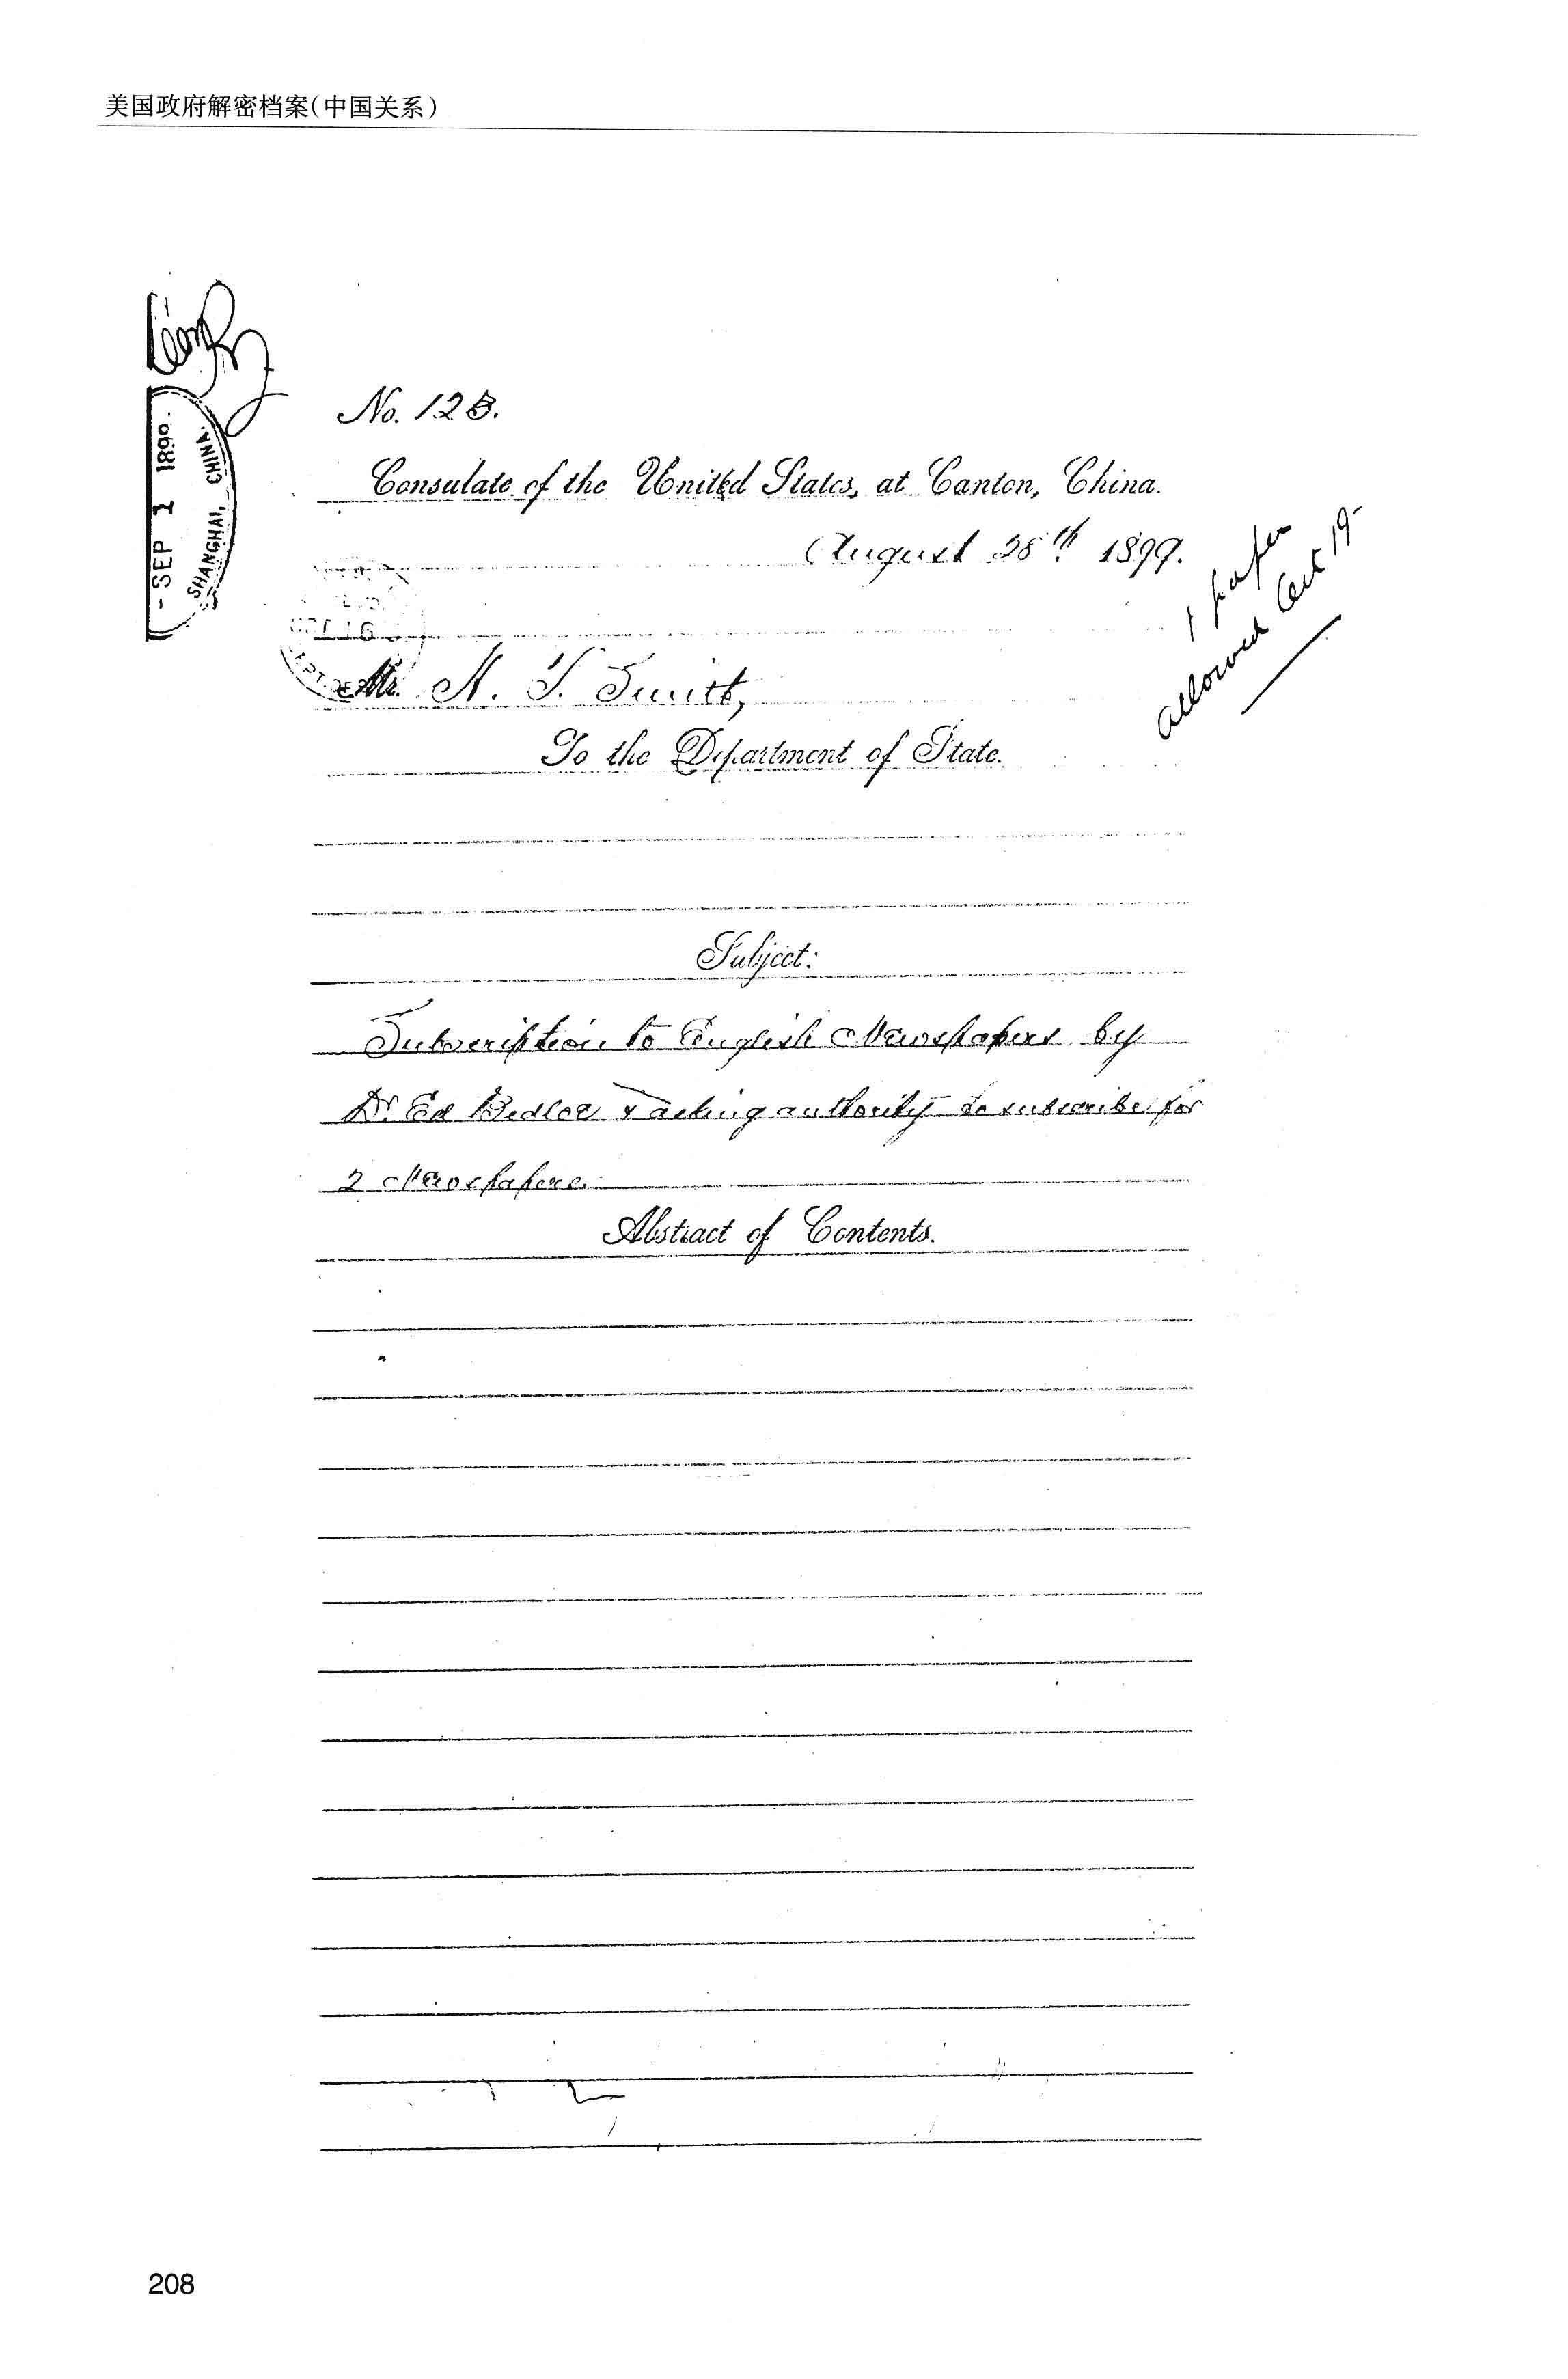 美国政府解密档案(中国关系)
- SEP 1 1899.
SHANGHAI, CHINA.
No. 123.
Consulate of the United States, at Canton, China.
August 28th 1899.
1 paper
allowed Oct 19-
Mr.
To the Department of State.
Subject:
Subscription to English Newspapers by
Dr. Ed Bedloe & asking authority to subscribe for
2 Newspapers.
Abstract of Contents.
208